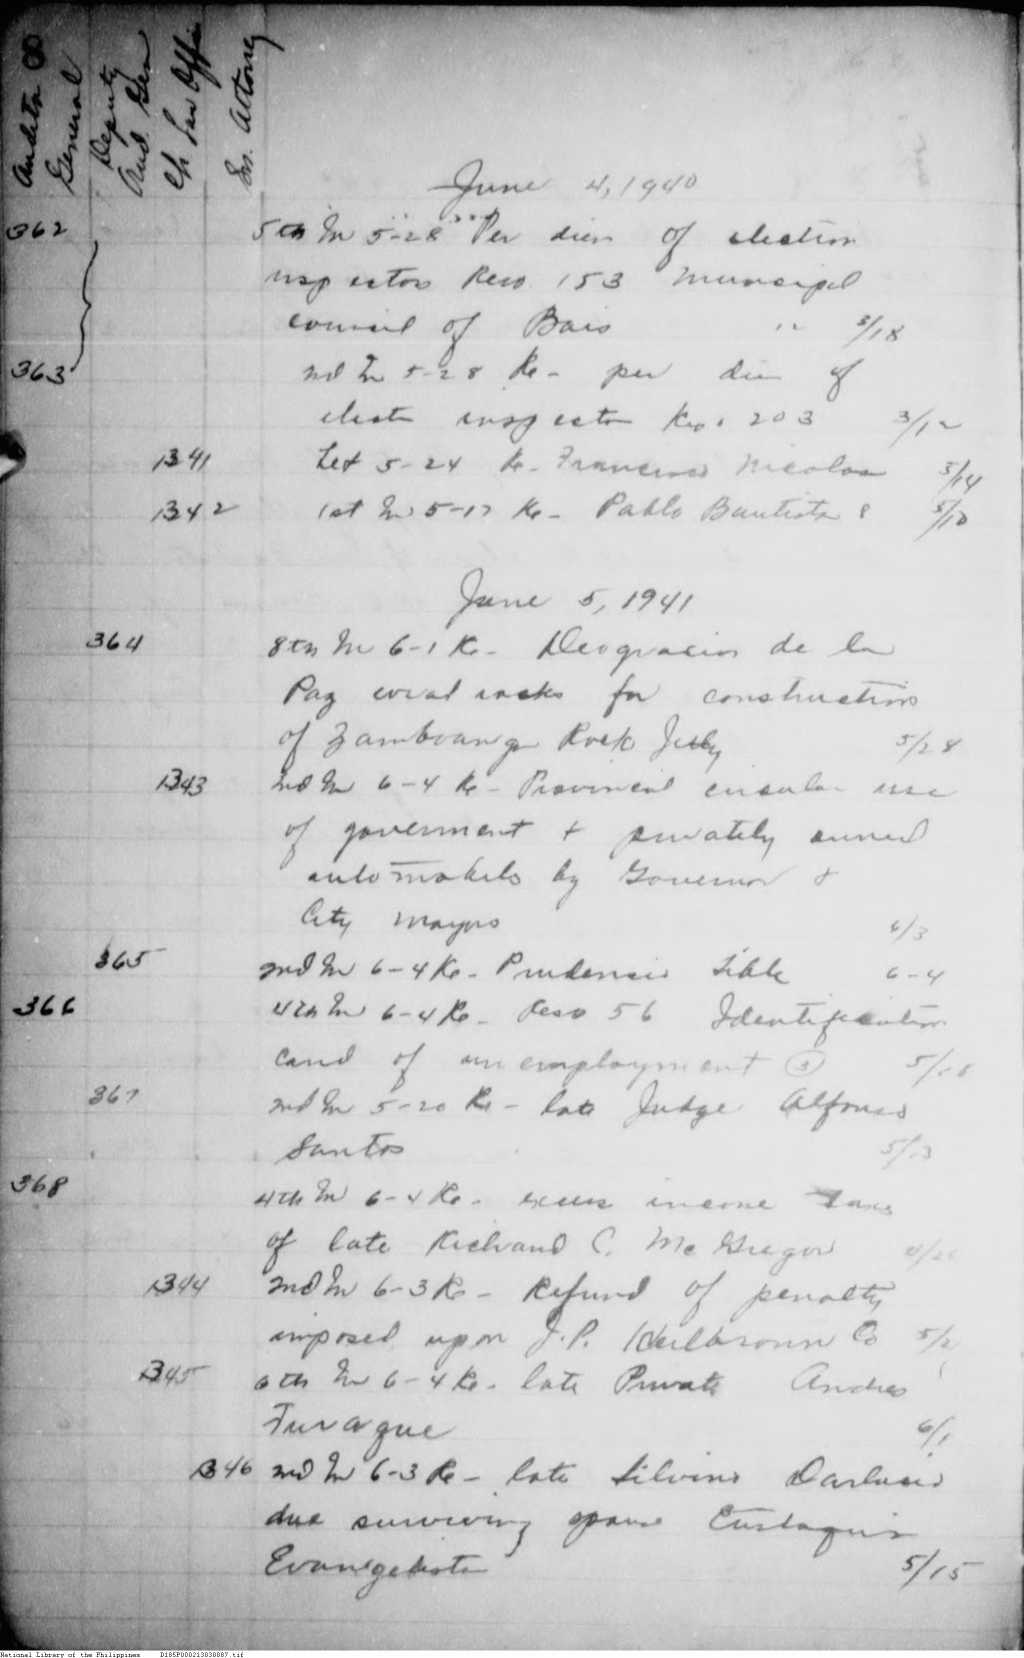 8
Auditor General
Deputy Aud. Gen
Ch Law Offi
Sr. Attorney
June 4, 1940
362 5th In 5-28 Per diem of election
inspectors Reso. 153 Municipal
council of Bais " 3/18
363 2nd In 5-28 Re- per diem of
election inspector Reso. 203 3/12
1341 Let 5-24 Re- Francisco Nicolas 5/14
1342 1st In 5-17 Re- Pablo Bautista 5/10
June 5, 1941
364 8th In 6-1 Re- Deogracias de la
Paz coral rocks for construction
of Zamboanga Rock Jetty 5/28
1343 2nd In 6-4 Re- Provincial circular use
of government + privately owned
automobiles by Governor +
City Mayors 6/3
365 2nd In 6-4 Re- Prudencio 6-4
366 4th In 6-4 Re- Reso 56 Identification
card of unemployment
367 2nd In 5-20 Re- late Judge Alfonso
Santos
368 4th In 6-4 Re- excess income taxes
of late Richard C. McGregor
1344 2nd In 6-3 Re- Refund of penalty
imposed upon J.P. Heilbronn Co 5/2
1345 6th In 6-4 Re- late Private Andres
6/1
1346 2nd In 6-3 Re- late Silvino
due surviving spouse Eustaquia
Evangelista 5/15
National Library of the Philippines D185P000213030087.tif